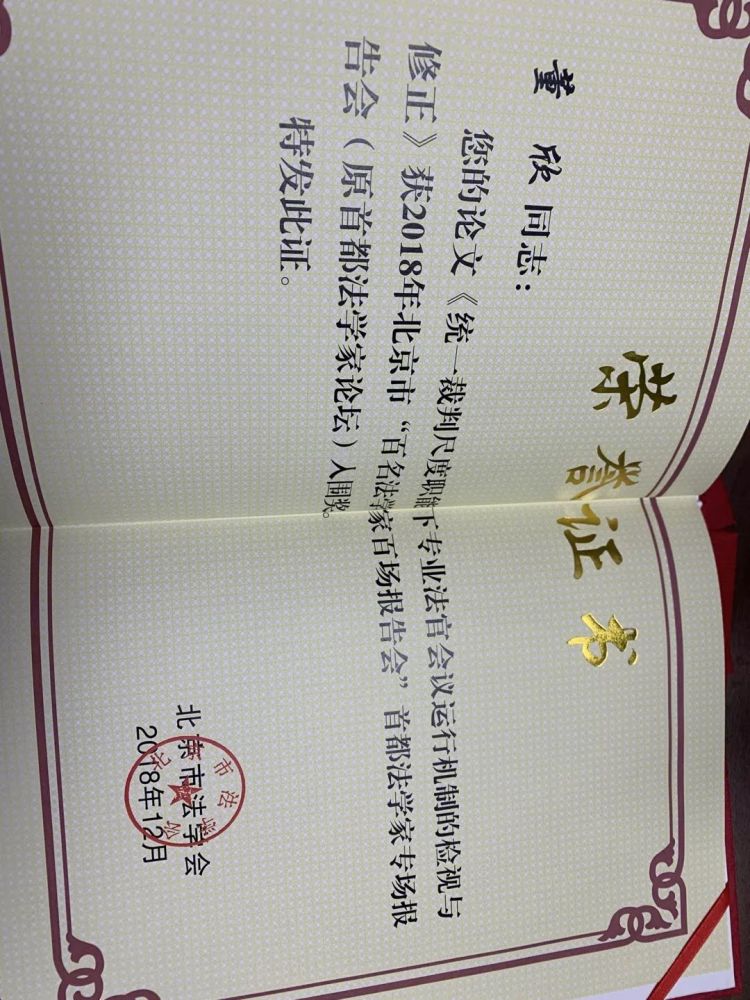 荣誉证书
董欣同志：
您的论文《统一裁判尺度职能下专业法官会议运行机制的检视与
修正》获2018年北京市“百名法学家百场报告会”首都法学家专场报
告会（原首都法学家论坛）入围奖。
特发此证。
北京市法学会
2018年12月